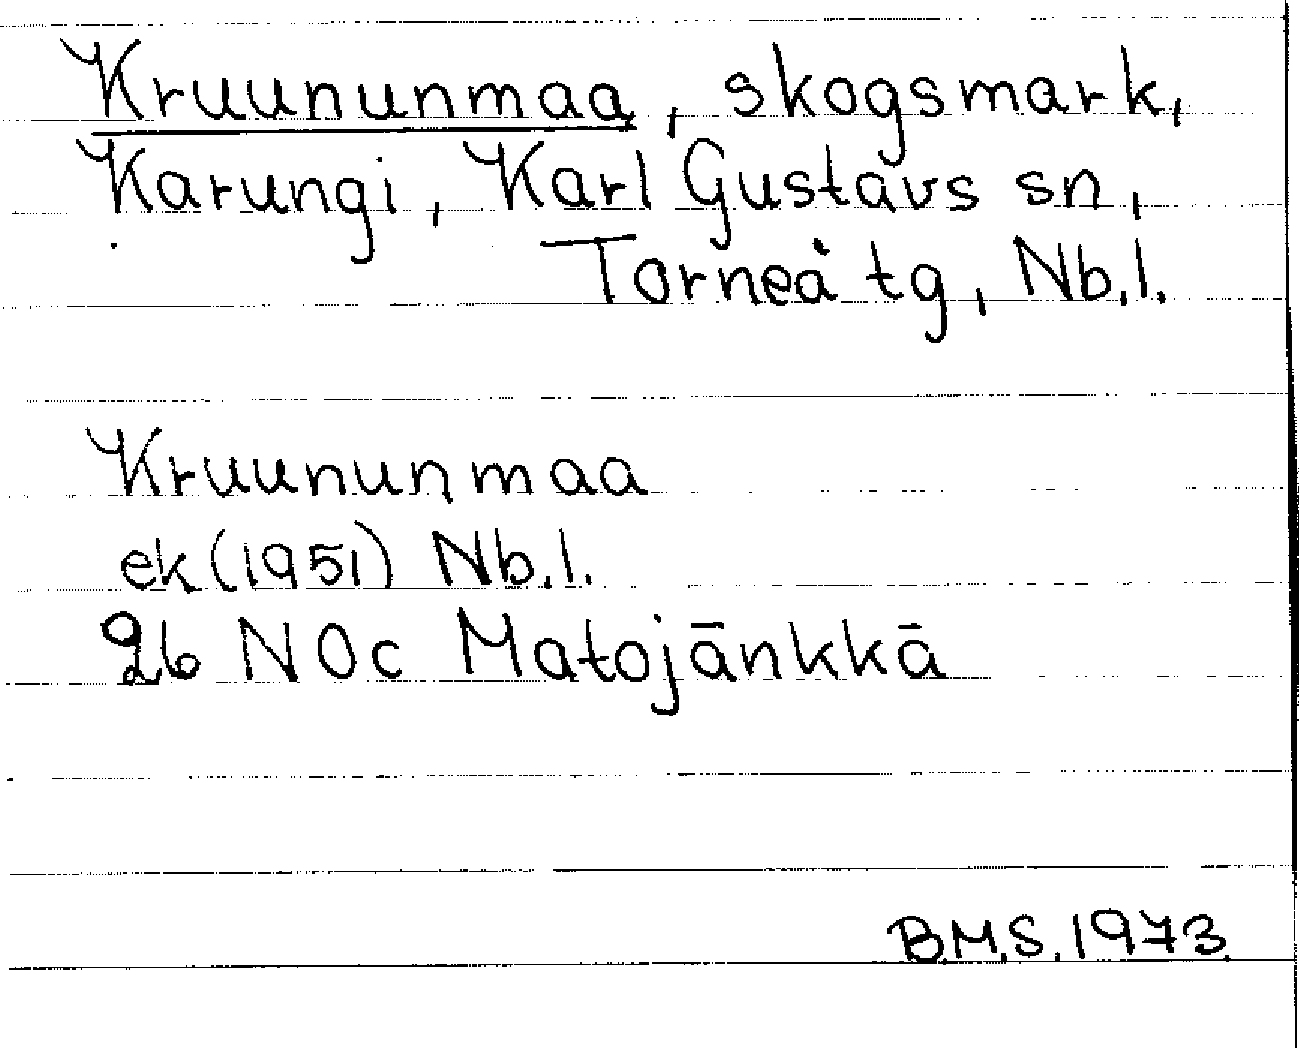 Kruununmaa, skogsmark,
Karungi, Karl Gustavs sn,
Torneå tg, Nb.l.
Kruununmaa
ek (1951) Nb.l.
26 NOc Matojänkkä
B.M.S. 1973